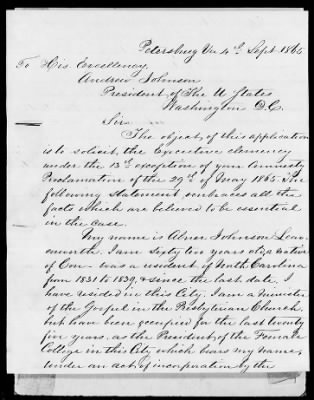 Petersburg Va 4th Sept 1865
To His Excellency,
Andrew Johnson
President of The U States
Washington D.C.
Sir
The object of this application
is to solicit, the Executive clemency
under the 13th exception of your Amnesty
Proclamation of the 29th of May 1865. The
following statement embraces all the
facts which are believed to be essential
in the case.
My name is Abner Johnson Leav-
enworth. I am sixty two years old, a native
of Con - was a resident of North Carolina
from 1831 to 1839, & since the last date, I
have resided in this City. I am a Minister
of the Gospel in the Presbyterian Church,
but have been occupied for the last twenty
five years, as the President, of the Female
College in this City which bears my name,
under an act, of incorporation by the